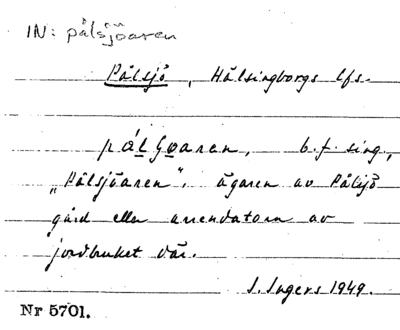 IN: pålsjöaren
Pålsjö, Hälsingborgs lfs.
b.f. sing.,
"Pålsjöaren", ägaren av Pålsjö
gård eller arrendatorn av
jordbruket där.
I. Ingers 1949.
Nr 5701.